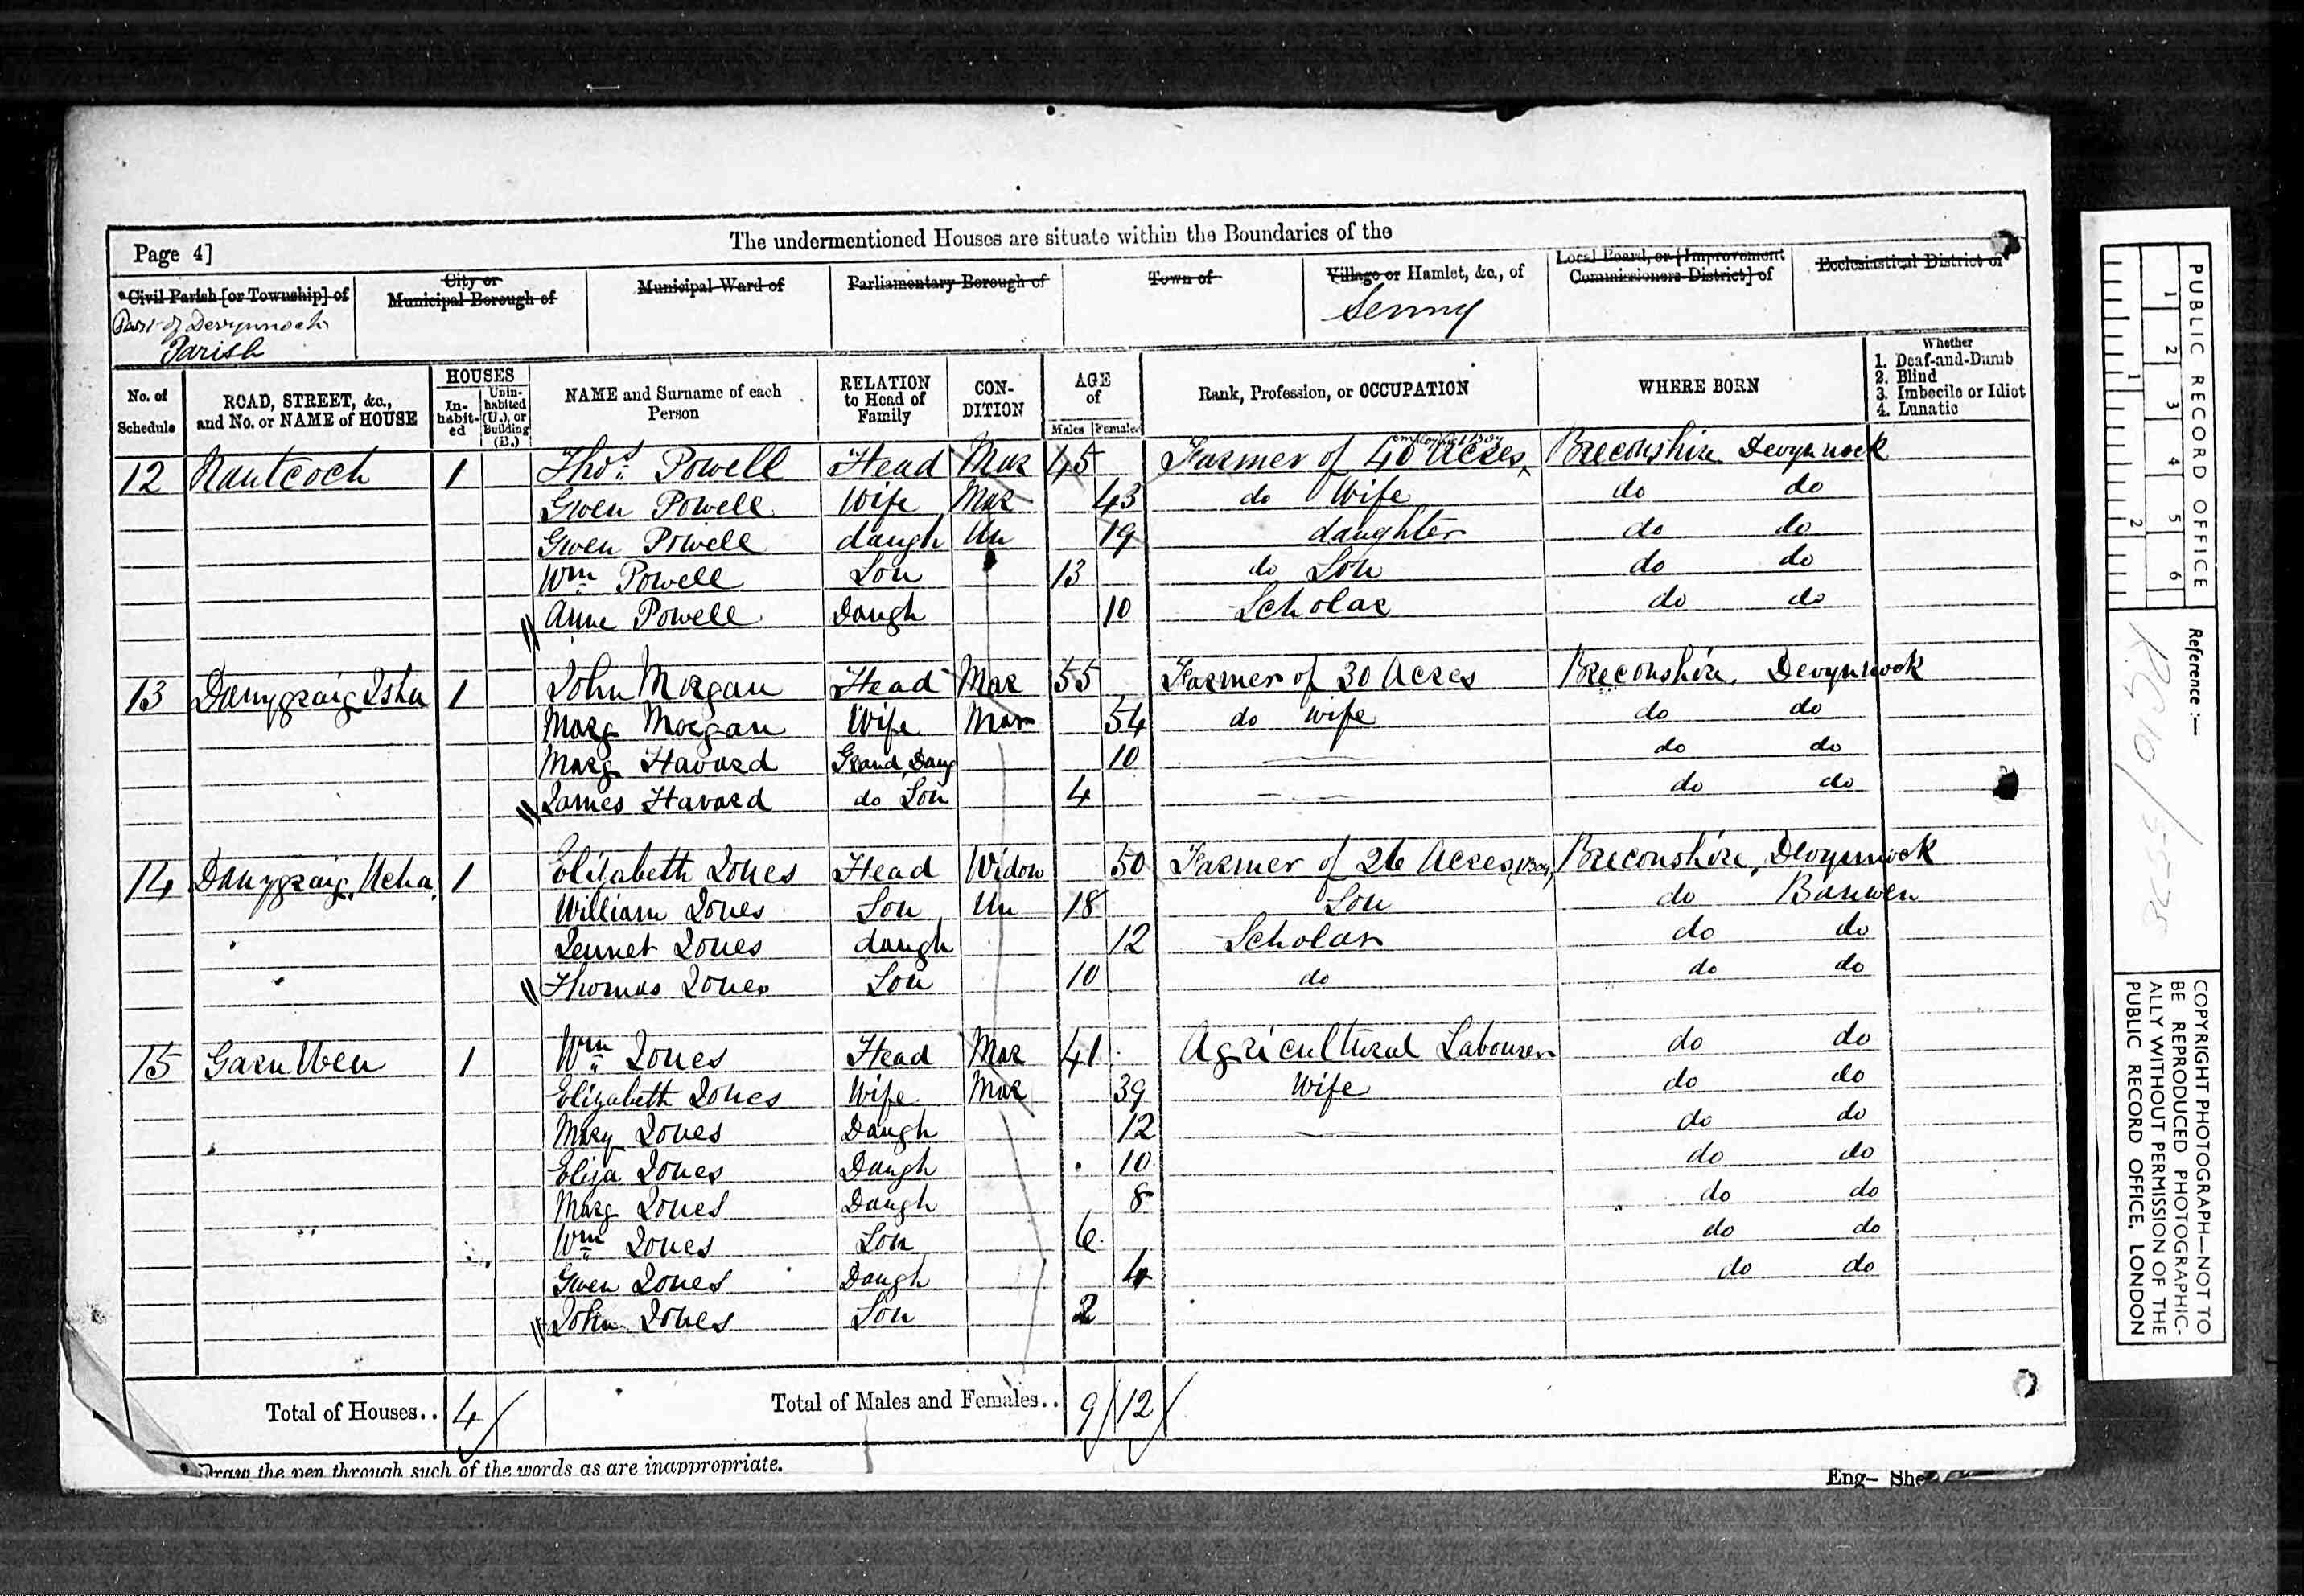 The undermentioned Houses are situate within the Boundaries of the
Page 4]
*Civil Parish [or Township] of
Part of Devynnock
Parish
City or
Municipal Borough of
Municipal Ward of
Parliamentary Borough of
Town of
Village or Hamlet, &c., of
Senny
Local Board, or [Improvement
Commissioners District] of
Ecclesiastical District of
No. of
Schedule
ROAD, STREET, &c.,
and No. or NAME of HOUSE
HOUSES
In-
habit-
ed
Unin-
habited
(U.), or
Building
(B.)
NAME and Surname of each
Person
RELATION
to Head of
Family
CON-
DITION
AGE
of
Males Females
Rank, Profession, or OCCUPATION
WHERE BORN
Whether
1. Deaf-and-Dumb
2. Blind
3. Imbecile or Idiot
4. Lunatic
12 Nantcoch 1 Thos. Powell Head Mar 45 Farmer of 40 Acres Breconshire Devynnock
Gwen Powell Wife Mar 43 do Wife do do
Gwen Powell daugh Un 19 daughter do do
Wm Powell Son 13 do Son do do
Anne Powell Daugh 10 Scholar do do
13 Danygraig Isha 1 John Morgan Head Mar 55 Farmer of 30 Acres Breconshire, Devynnock
Marg Morgan Wife Mar 54 do wife do do
Marg Havard Grand Daug 10 — do do
James Havard do Son 4 — do do
14 Danygraig Ucha 1 Elizabeth Jones Head Widow 50 Farmer of 26 Acres Breconshire, Devynnock
William Jones Son Un 18 Son do Banwen
Jennet Jones daugh 12 Scholar do do
Thomas Jones Son 10 do do do
15 Garn Wen 1 Wm Jones Head Mar 41 Agricultural Labourer do do
Elizabeth Jones Wife Mar 39 Wife do do
Mary Jones Daugh 12 — do do
Eliza Jones Daugh 10 do do
Marg Jones Daugh 8 do do
Wm Jones Son 6 do do
Gwen Jones Daugh 4 do do
John Jones Son 2
Total of Houses.. 4 Total of Males and Females.. 9 12
* Draw the pen through such of the words as are inappropriate.
Eng— She
PUBLIC RECORD OFFICE
1 2 3 4 5 6
1 2
Reference :—
RG 10/5538
COPYRIGHT PHOTOGRAPH—NOT TO
BE REPRODUCED PHOTOGRAPHIC-
ALLY WITHOUT PERMISSION OF THE
PUBLIC RECORD OFFICE, LONDON